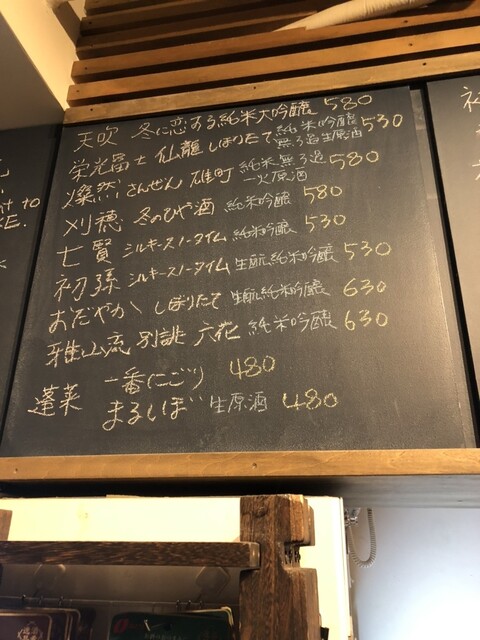 天吹 冬に恋する純米大吟醸 580
栄光冨士 仙龍 しぼりたて 純米吟醸 無ろ過生原酒 530
燦然 さんぜん 雄町 純米無ろ過 一火原酒 580
刈穂 冬のひや酒 純米吟醸 580
七賢 シルキースノータイム 純米吟醸 530
初孫 シルキースノータイム 生酛純米吟醸 530
おだやか しぼりたて 生酛純米吟醸 630
雅山流 別誂 六花 純米吟醸 630
蓬莱 一番にごり 480
まるしぼ 生原酒 480
t to
E.